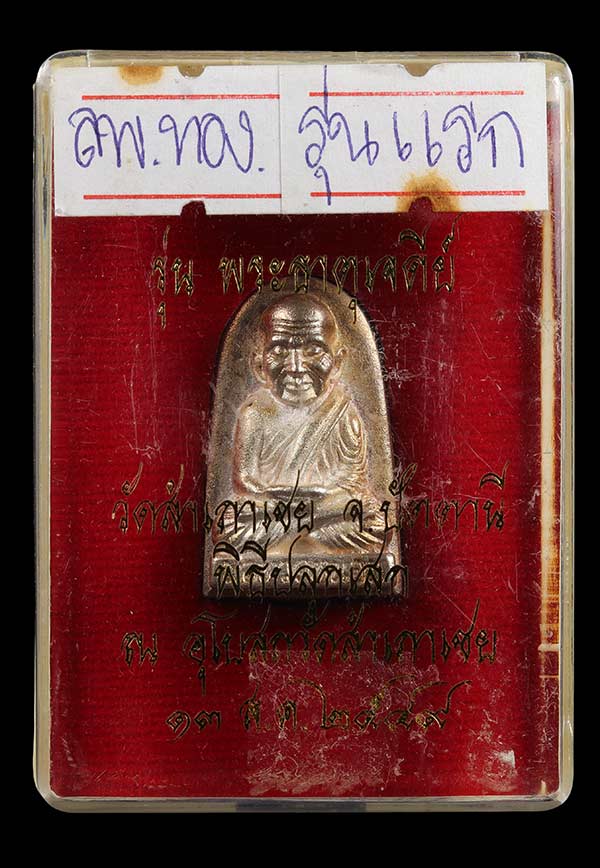 ลพ.ทอง. รุ่นแรก
รุ่น พระธาตุเจดีย์
วัดสำเภาเชย จ.ปัตตานี
พิธีปลุกเสก
ณ อุโบสถวัดสำเภาเชย
๑๓ ส.ค. ๒๕๔๙